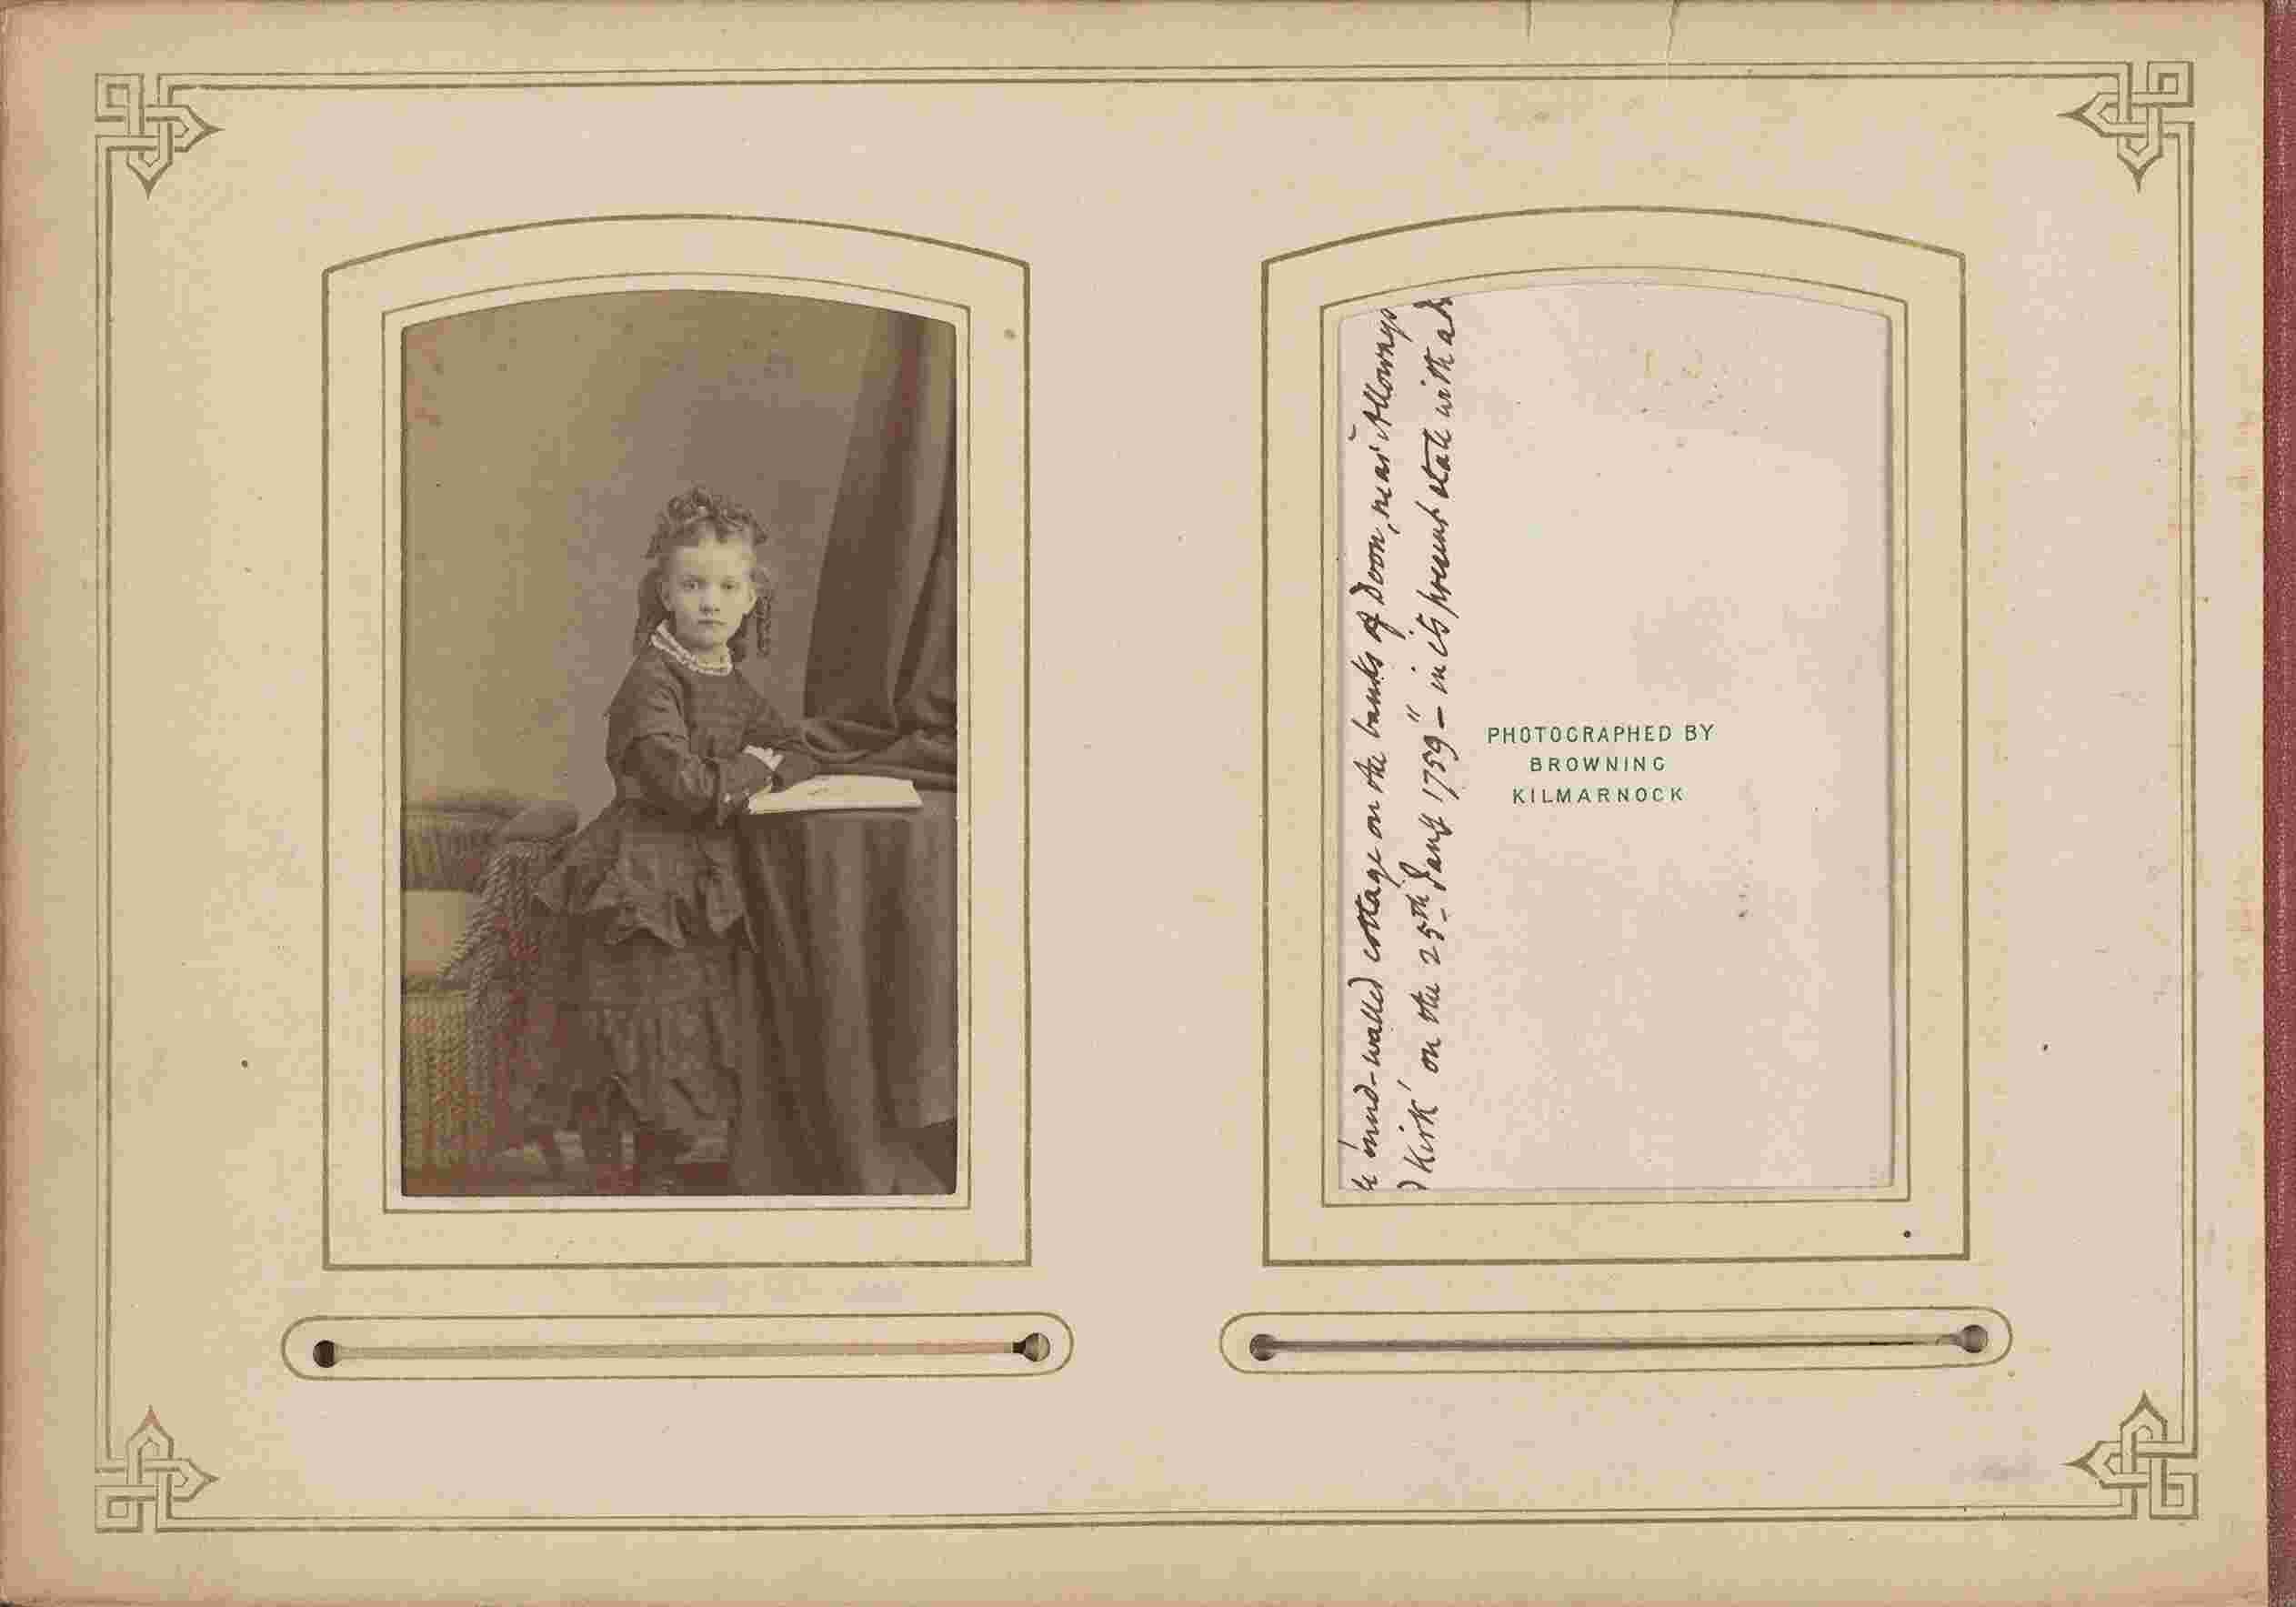 'mud-walled cottage on the banks of Doon, near 'Alloways
Kirk' on the 25th Jany 1759" — in its present state with
PHOTOGRAPHED BY
BROWNING
KILMARNOCK